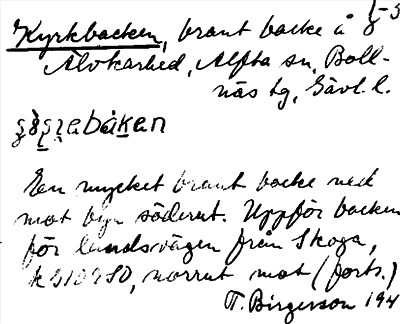 Kyrkbacken, brant backe å
Älvkarhed, Alfta sn, Boll-
näs tg, Gävl. l.
En mycket brant backe ned
mot byn söderut. Uppför backen
för landsvägen från Skoga,
norrut mot (forts.)
T. Birgersson 194